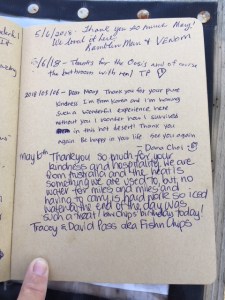 5/6/2018 - Thank you so much Mary!
We loved it here!
Ramblin' Man & Venom
5/6/18 - Thanks for the Oasis and of course
the bathroom with real TP
2018/05/06 - Dear Mary Thank you for your pure
kindness. I'm from Korea and I'm having
such a wonderful experience here
without you I wonder how I survived
in this hot desert! Thank you
again Be happy in your life. See you again
May 6th Thank you so much for your
kindness and hospitality. We are
from Australia and the heat is
something we are used to but no
water for miles and miles and
having to carry is hard. More so iced
water @ the end of the day was
such a treat! chips birthday today!
Tracey & David Pass aka Fishn Chips